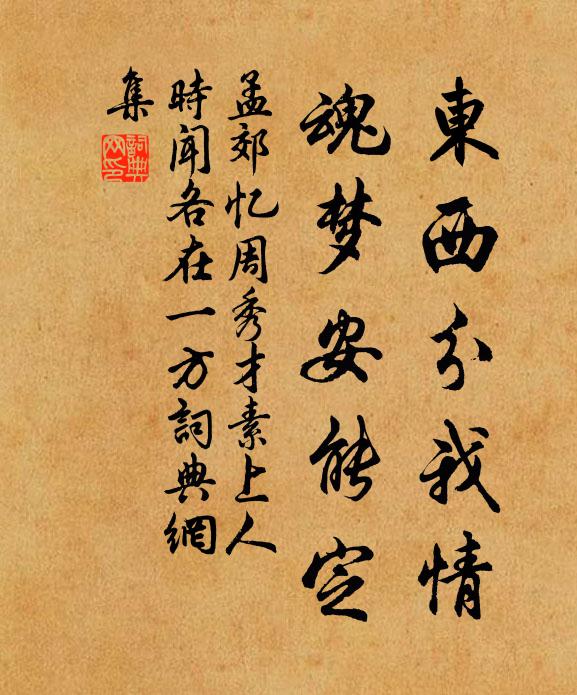 東西分我情
魂梦安能定
孟郊忆周秀才素上人
時闻各在一方詞典網
集
詞典网印